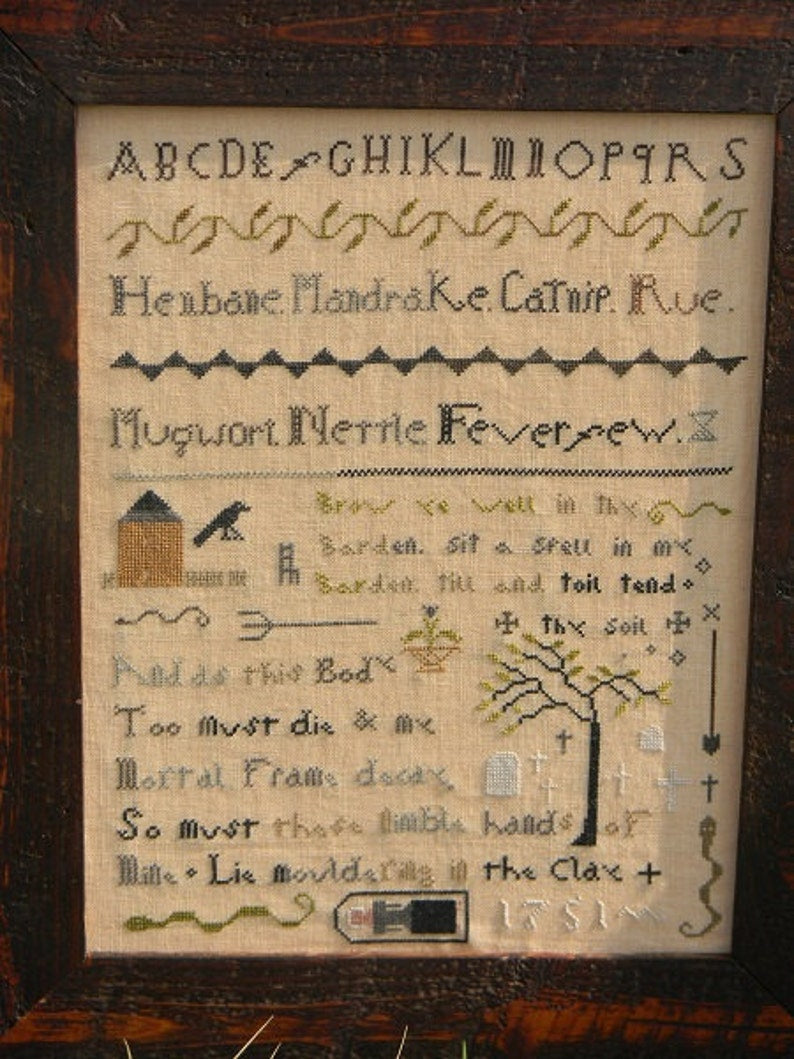 ABCDEfGHIKLMNOPqRS
Henbane. Mandrake. Catnip. Rue.
Mugwort. Nettle Feverfew.
Grow ye well in thy
Garden. sit a spell in my
Garden. till and toil tend
thy soil
And as this Body
Too must die & my
Mortal Frame decay,
So must these nimble hands of
Mine Lie mouldering in the Clay
1751